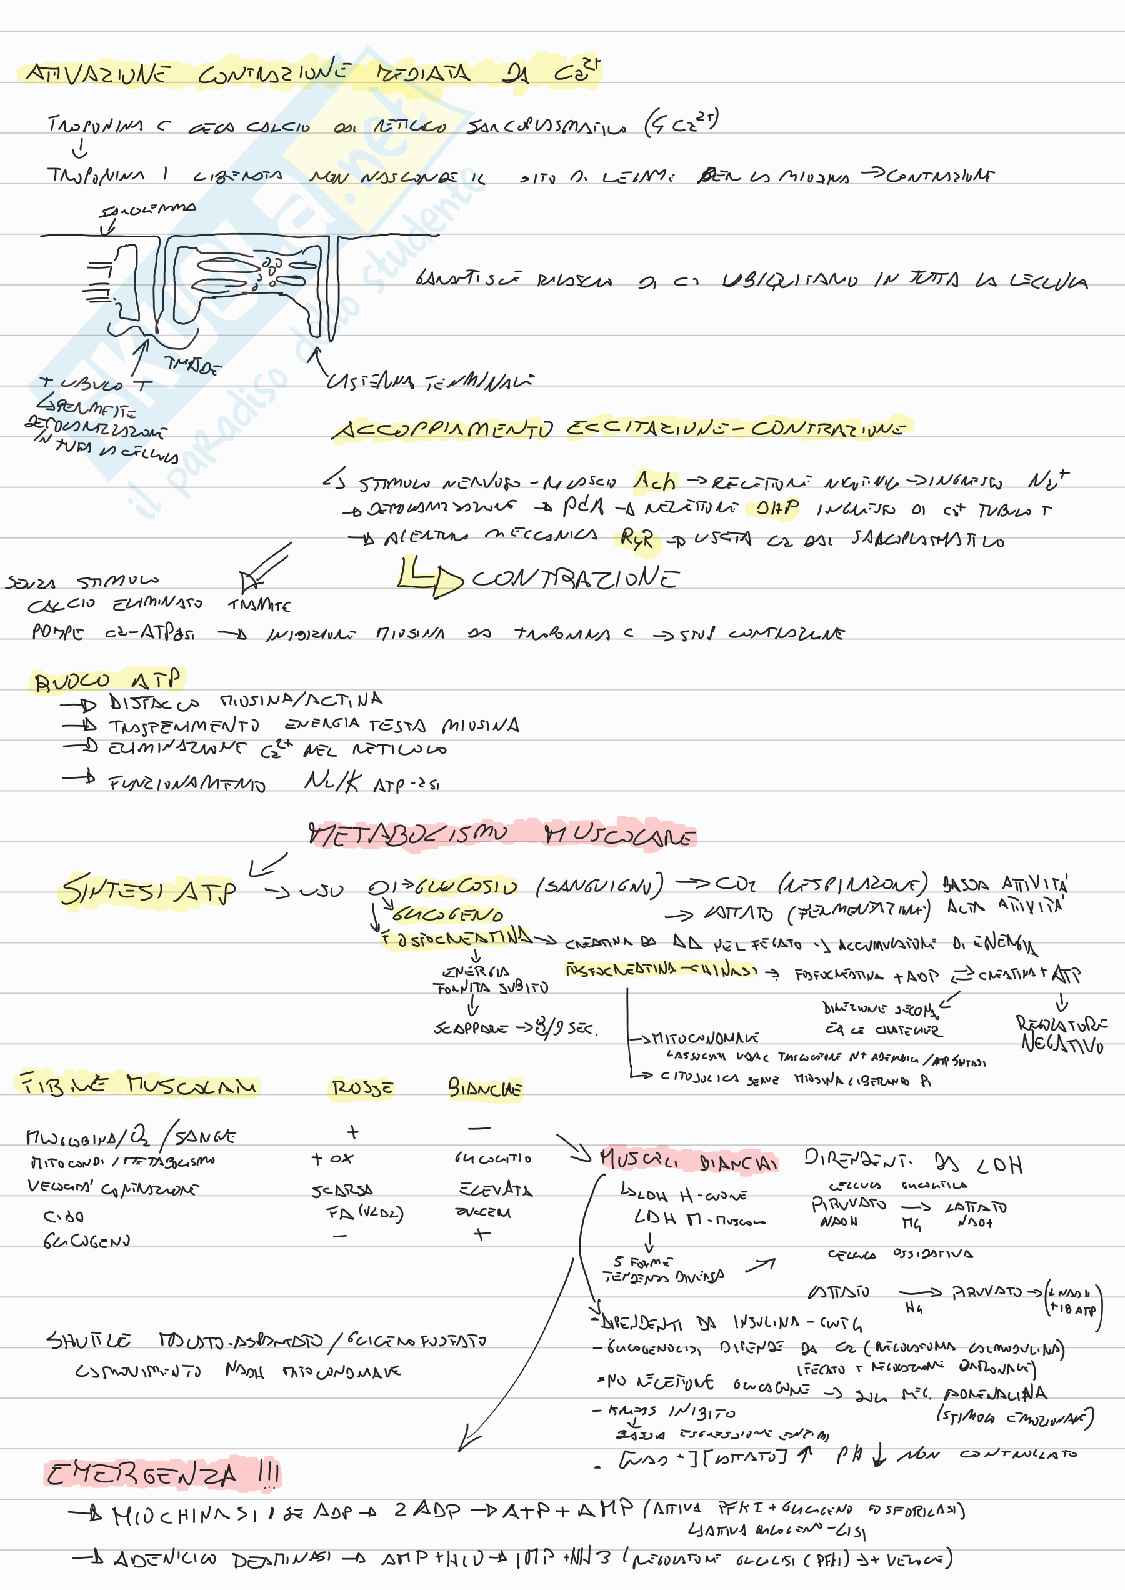 ATTIVAZIONE CONTRAZIONE MEDIATA DA Ca2+
TROPONINA C LEGA CALCIO DAL RETICOLO SARCOPLASMATICO (4 Ca2+)
TROPONINA I LIBERATA NON NASCONDE IL SITO DI LEGAME PER LA MIOSINA → CONTRAZIONE
SARCOLEMMA
GARANTISCE RILASCIO DI Ca UBIQUITARIO IN TUTTA LA CELLULA
TRIADE
TUBULO T
CISTERNA TERMINALE
↳ PERMETTE
DEPOLARIZZAZIONE
IN TUTTA LA CELLULA
ACCOPPIAMENTO ECCITAZIONE-CONTRAZIONE
↳ STIMOLO NERVOSO - RILASCIO Ach → RECETTORE → INGRESSO Na+
→ DEPOLARIZZAZIONE → PdA → RECETTORE DHP INGRESSO DI Ca2+ TUBULO T
→ APERTURA MECCANICA RyR → USCITA Ca DAL SARCOPLASMATICO
CONTRAZIONE
SENZA STIMOLO
CALCIO ELIMINATO TRAMITE
POMPE Ca-ATPasi → INIBIZIONE MIOSINA DA TROPONINA C → STOP CONTRAZIONE
RUOLO ATP
→ DISTACCO MIOSINA/ACTINA
→ TRASFERIMENTO ENERGIA TESTA MIOSINA
→ ELIMINAZIONE Ca2+ NEL RETICOLO
→ FUNZIONAMENTO Na/K ATP-asi
METABOLISMO MUSCOLARE
SINTESI ATP → USO DI → GLUCOSIO (SANGUIGNO) → CO2 (RESPIRAZIONE) BASSA ATTIVITÀ
GLICOGENO → LATTATO (FERMENTAZIONE) ALTA ATTIVITÀ
FOSFOCREATINA → CREATINA DA AA NEL FEGATO → ACCUMULATORE DI ENERGIA
ENERGIA
FORNITA SUBITO
FOSFOCREATINA-CHINASI → FOSFOCREATINA + ADP ⇌ CREATINA + ATP
SCAPPARE → 8/9 SEC.
DIREZIONE SECONDO
LE CHATELIER
REGOLATORE
NEGATIVO
→ MITOCONDRIALE
→ CITOSOLICA SERVE MIOSINA LIBERANDO Pi
FIBRE MUSCOLARI ROSSE BIANCHE
MIOGLOBINA/O2/SANGUE + -
MITOCONDRI/METABOLISMO + OX GLICOLITICO
VELOCITÀ CONTRAZIONE SCARSA ELEVATA
CIBO FA (VLDL) GLUCOSIO
GLICOGENO - +
MUSCOLI BIANCHI DIPENDENTI DA LDH
↳ LDH H-CUORE
LDH M-MUSCOLI
CELLULA GLICOLITICA
PIRUVATO → LATTATO
NADH M4 NAD+
5 FORME
TENDENZA DIVERSA
CELLULA OSSIDATIVA
LATTATO → PIRUVATO → (
H4
- DIPENDENTI DA INSULINA - GLUT4
- GLICOGENOLISI DIPENDE DA Ca (REGOLATORIA CALMODULINA)
(FEGATO + REGOLAZIONE ORMONALE)
- NO RECETTORE GLUCAGONE → SOLO REC. ADRENALINA
(STIMOLI EMOZIONALE)
- KREBS INIBITO
BASSA ESPRESSIONE ENZIMI
- [NAD+][LATTATO] ↑ PH ↓ NON CONTROLLATO
SHUTTLE MALATO-ASPARTATO/GLICEROFOSFATO
↳ MOVIMENTO NADH MITOCONDRIALE
EMERGENZA !!!
→ MIOCHINASI: 2 ADP → ATP + AMP (ATTIVA PFK1 + GLICOGENO FOSFORILASI)
↳ ATTIVA GLICOGENO-LISI
→ ADENILICO DEAMINASI → AMP + H2O → IMP + NH3 (REGOLATORE GLICOLISI (PFK1) → + VELOCE)